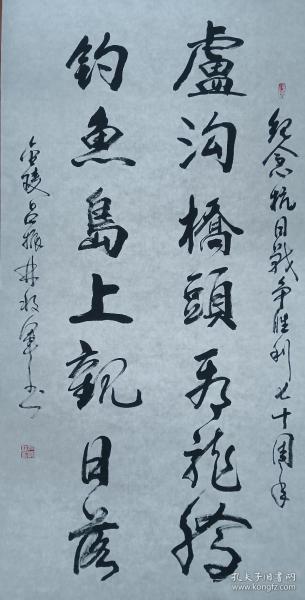 纪念抗日戰争胜利七十周年
盧沟橋頭看龍騰
钓魚島上觀日落
金陵吕振林
孔夫子旧书网